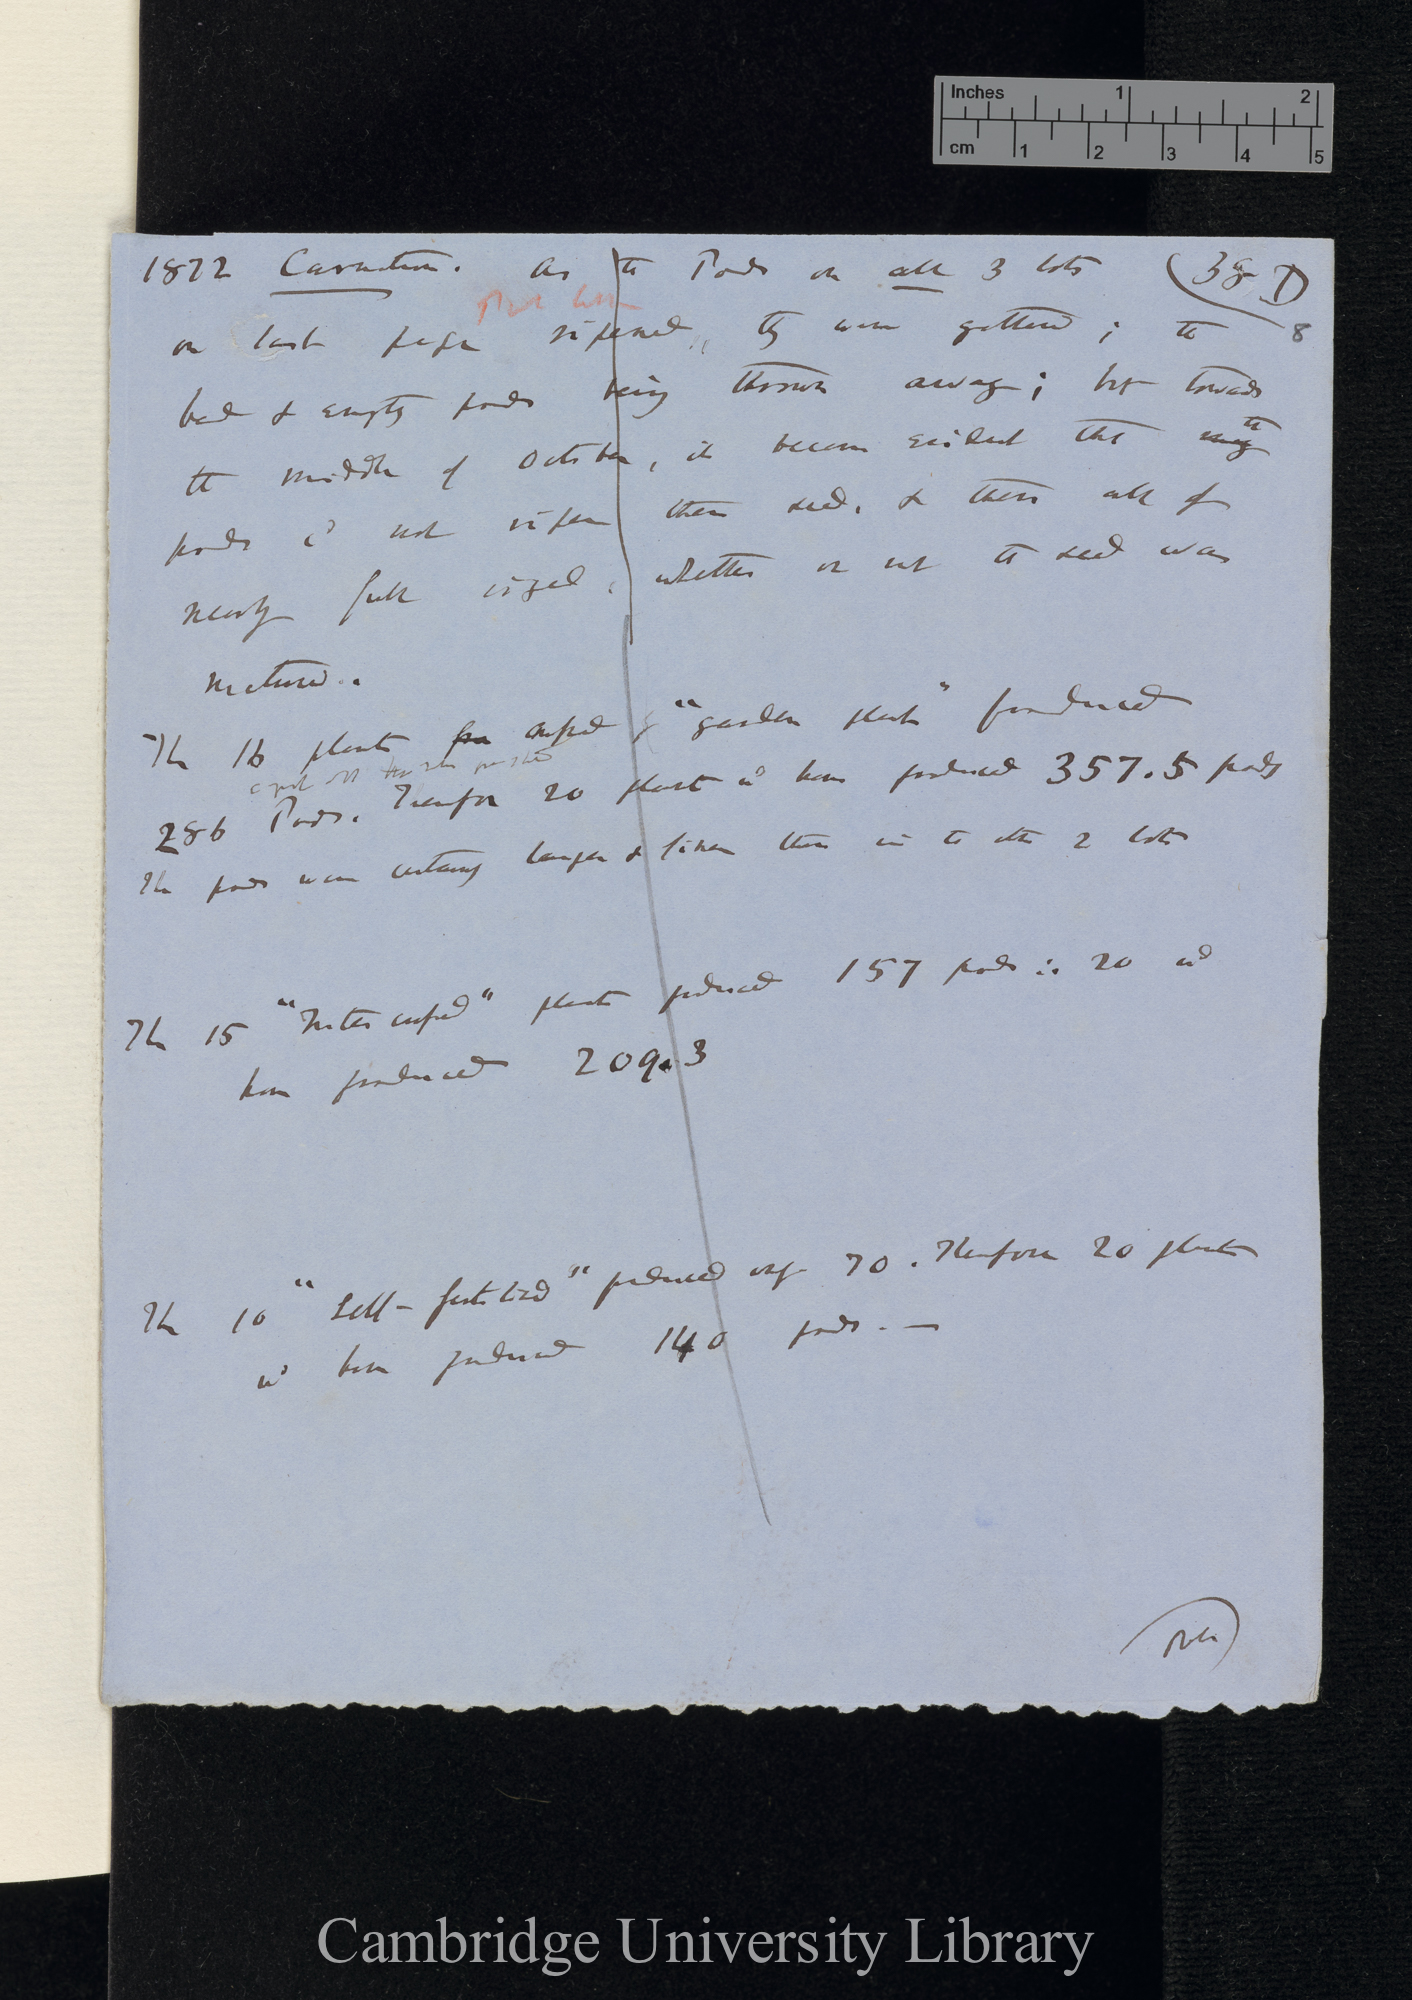 Inches 1 2
cm 1 2 3 4 5
1872 Carnation. As the Pods on all 3 lots 38 D
8
on last page ripened, they were gathered; the
bad & empty pods being thrown away; but towards
the middle of October, it became evident that many the
pods wd not ripen their seed, & then all
nearly full sized, whether or not the seed was
matured..
The 16 plants from crossed by "garden plant" produced
286 Pods. Therefore 20 plants wd have produced 357.5 pods
The pods were certainly larger & finer than in the other 2 lots
The 15 "Inter crossed" plants produced 157 pods ∴ 20 wd
have produced 209.3
The 10 "Self-fertilised" produced only 70. Therefore 20 plants
wd have produced 140 pods. —
Cambridge University Library